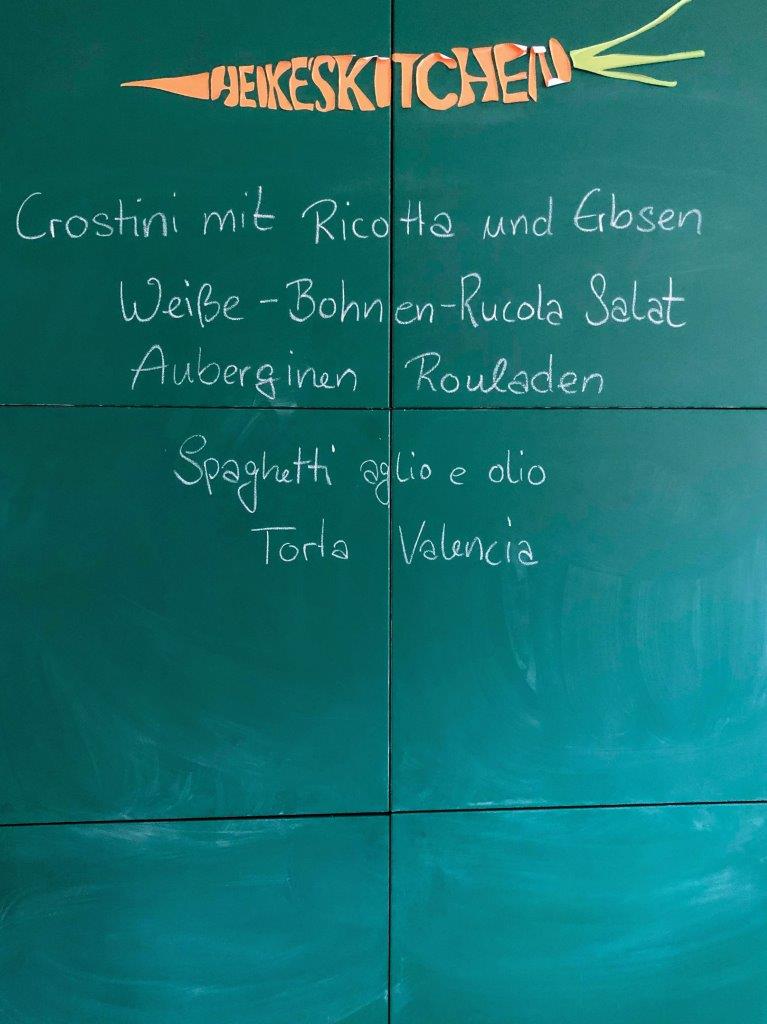 HEIKE'S KITCHEN
Crostini mit Ricotta und Erbsen
Weiße-Bohnen-Rucola Salat
Auberginen Rouladen
Spaghetti aglio e olio
Torta Valencia